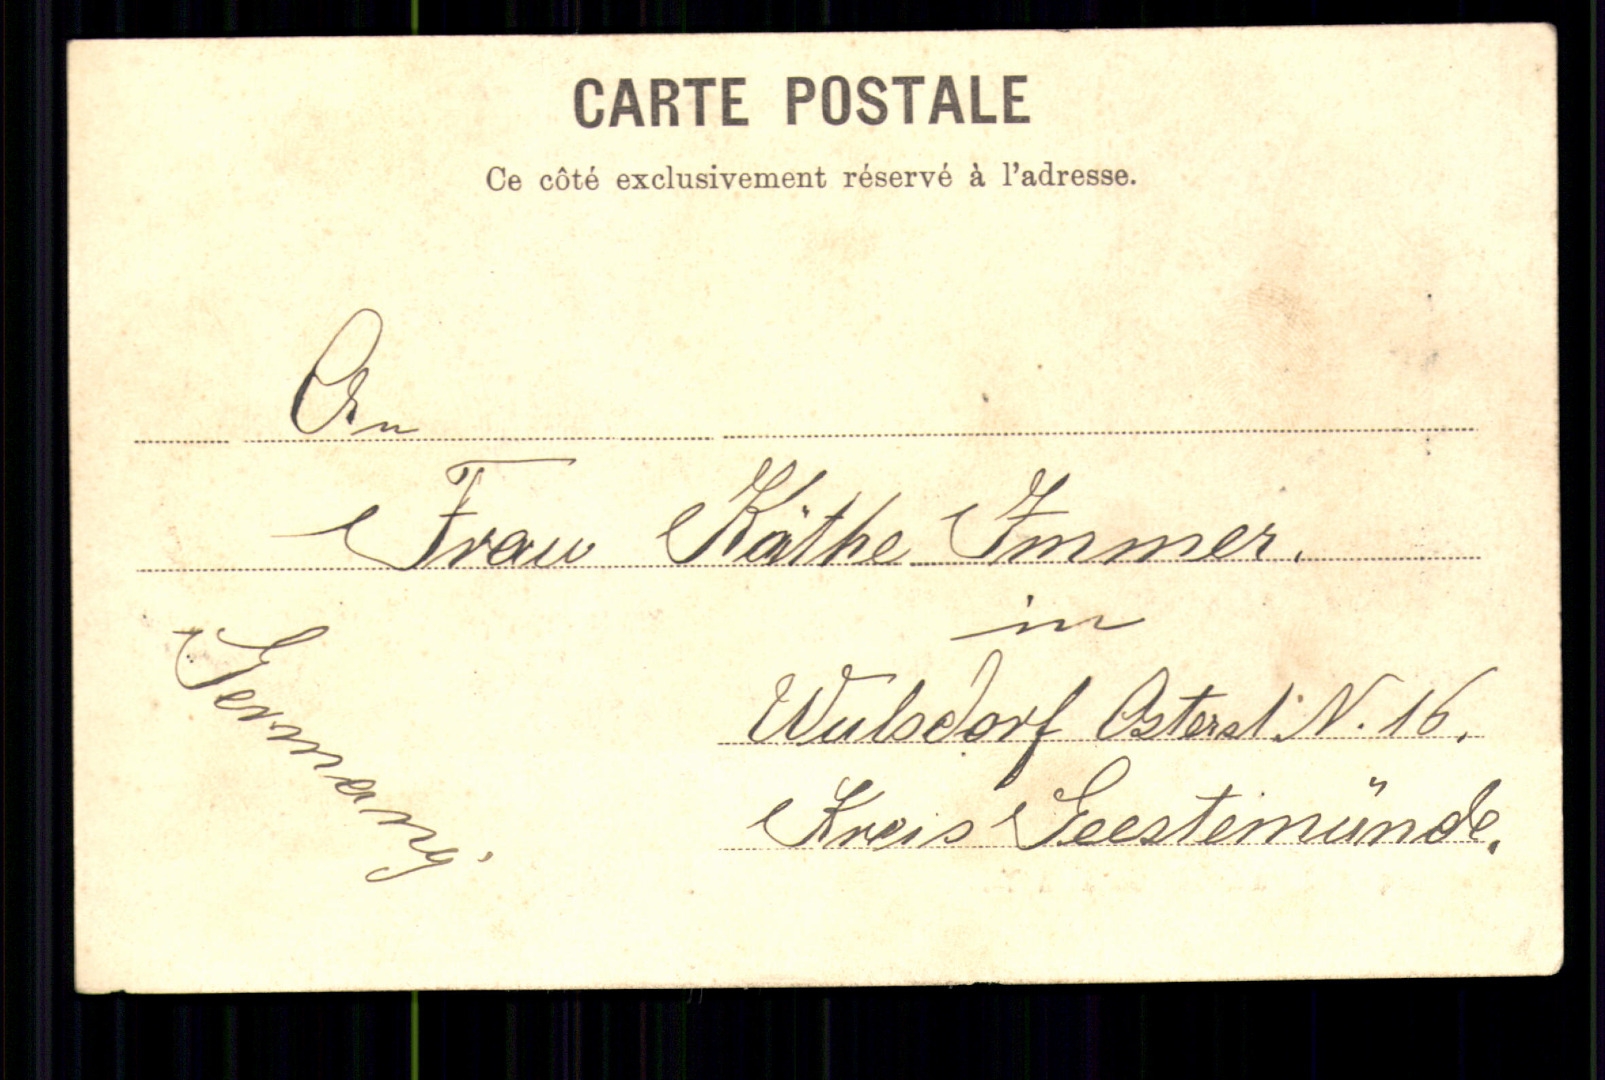 CARTE POSTALE
Ce côté exclusivement réservé à l'adresse.
An
Frau Käthe Immer.
in
Wulsdorf Osterst. N. 16.
Kreis Geestemünde.
Germany.